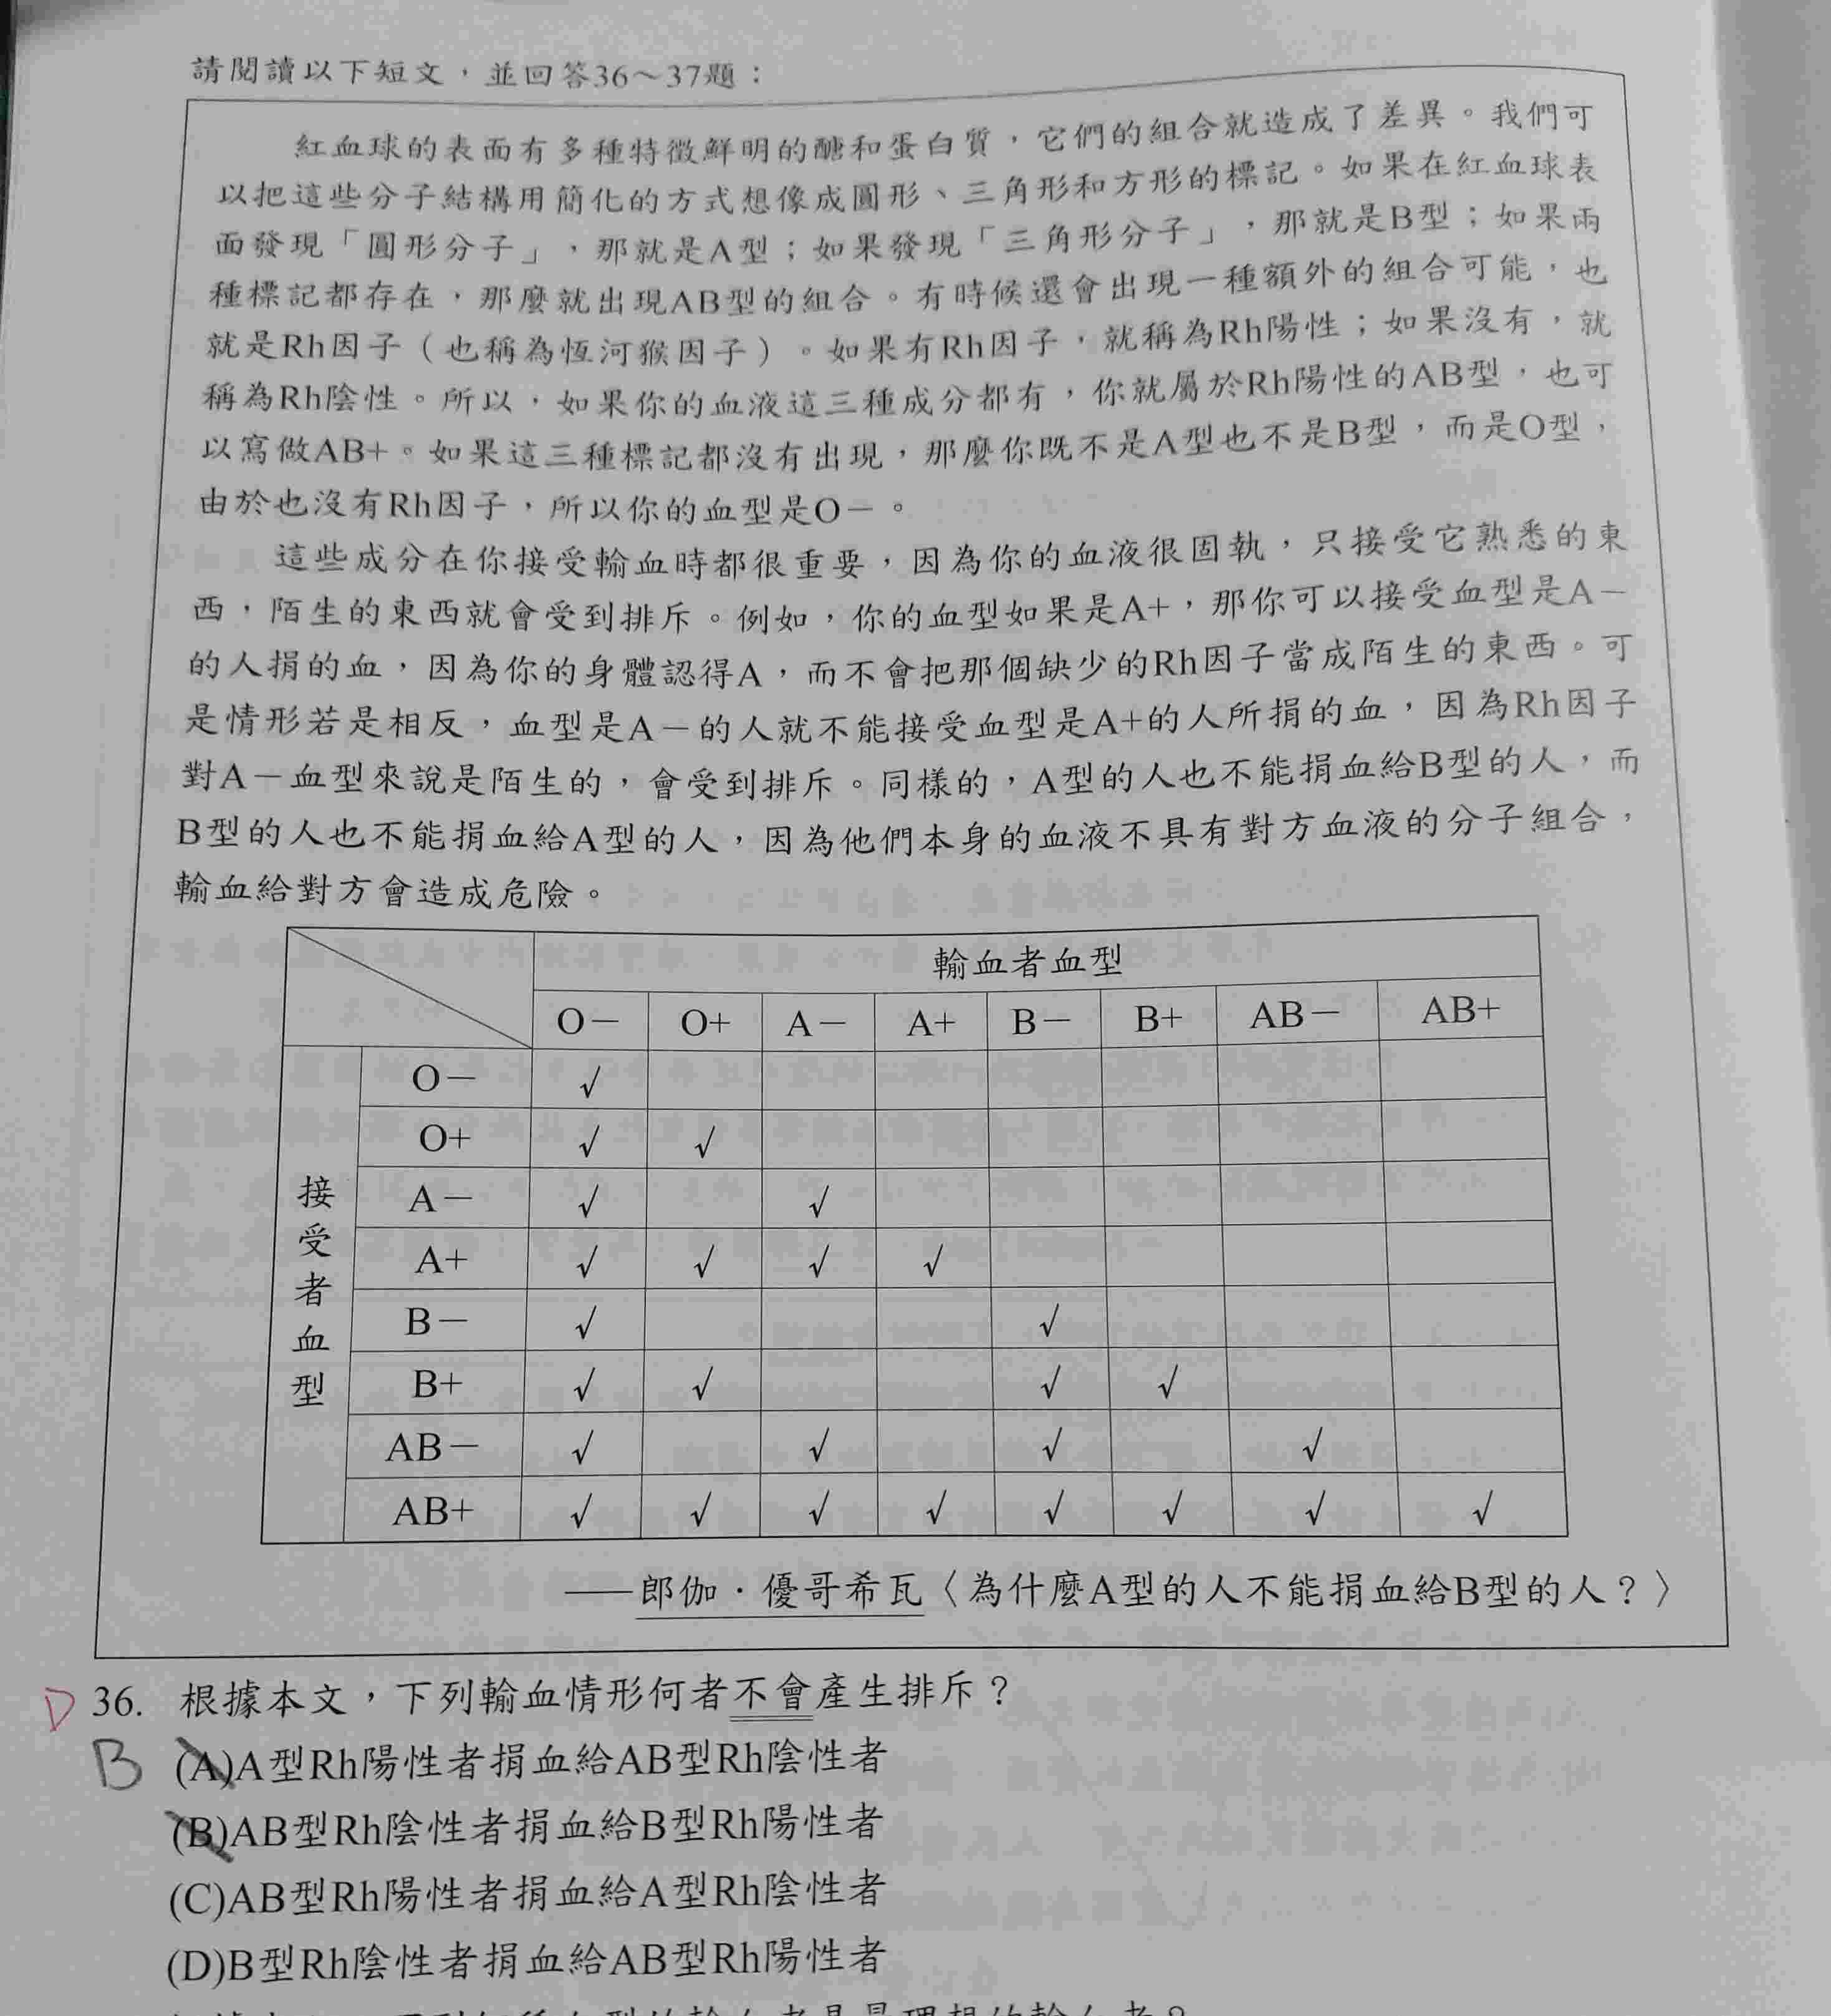 請閱讀以下短文，並回答36～37題：
紅血球的表面有多種特徵鮮明的醣和蛋白質，它們的組合就造成了差異。我們可
以把這些分子結構用簡化的方式想像成圓形、三角形和方形的標記。如果在紅血球表
面發現「圓形分子」，那就是A型；如果發現「三角形分子」，那就是B型；如果兩
種標記都存在，那麼就出現AB型的組合。有時候還會出現一種額外的組合可能，也
就是Rh因子（也稱為恆河猴因子）。如果有Rh因子，就稱為Rh陽性；如果沒有，就
稱為Rh陰性。所以，如果你的血液這三種成分都有，你就屬於Rh陽性的AB型，也可
以寫做AB+。如果這三種標記都沒有出現，那麼你既不是A型也不是B型，而是O型，
由於也沒有Rh因子，所以你的血型是O－。
這些成分在你接受輸血時都很重要，因為你的血液很固執，只接受它熟悉的東
西，陌生的東西就會受到排斥。例如，你的血型如果是A+，那你可以接受血型是A－
的人捐的血，因為你的身體認得A，而不會把那個缺少的Rh因子當成陌生的東西。可
是情形若是相反，血型是A－的人就不能接受血型是A+的人所捐的血，因為Rh因子
對A－血型來說是陌生的，會受到排斥。同樣的，A型的人也不能捐血給B型的人，而
B型的人也不能捐血給A型的人，因為他們本身的血液不具有對方血液的分子組合，
輸血給對方會造成危險。
輸血者血型
O－ O+ A－ A+ B－ B+ AB－ AB+
接受者血型
O－ √
O+ √ √
A－ √ √
A+ √ √ √ √
B－ √ √
B+ √ √ √ √
AB－ √ √ √ √
AB+ √ √ √ √ √ √ √ √
——郎伽・優哥希瓦〈為什麼A型的人不能捐血給B型的人？〉
D 36. 根據本文，下列輸血情形何者不會產生排斥？
B (A)A型Rh陽性者捐血給AB型Rh陰性者
(B)AB型Rh陰性者捐血給B型Rh陽性者
(C)AB型Rh陽性者捐血給A型Rh陰性者
(D)B型Rh陰性者捐血給AB型Rh陽性者